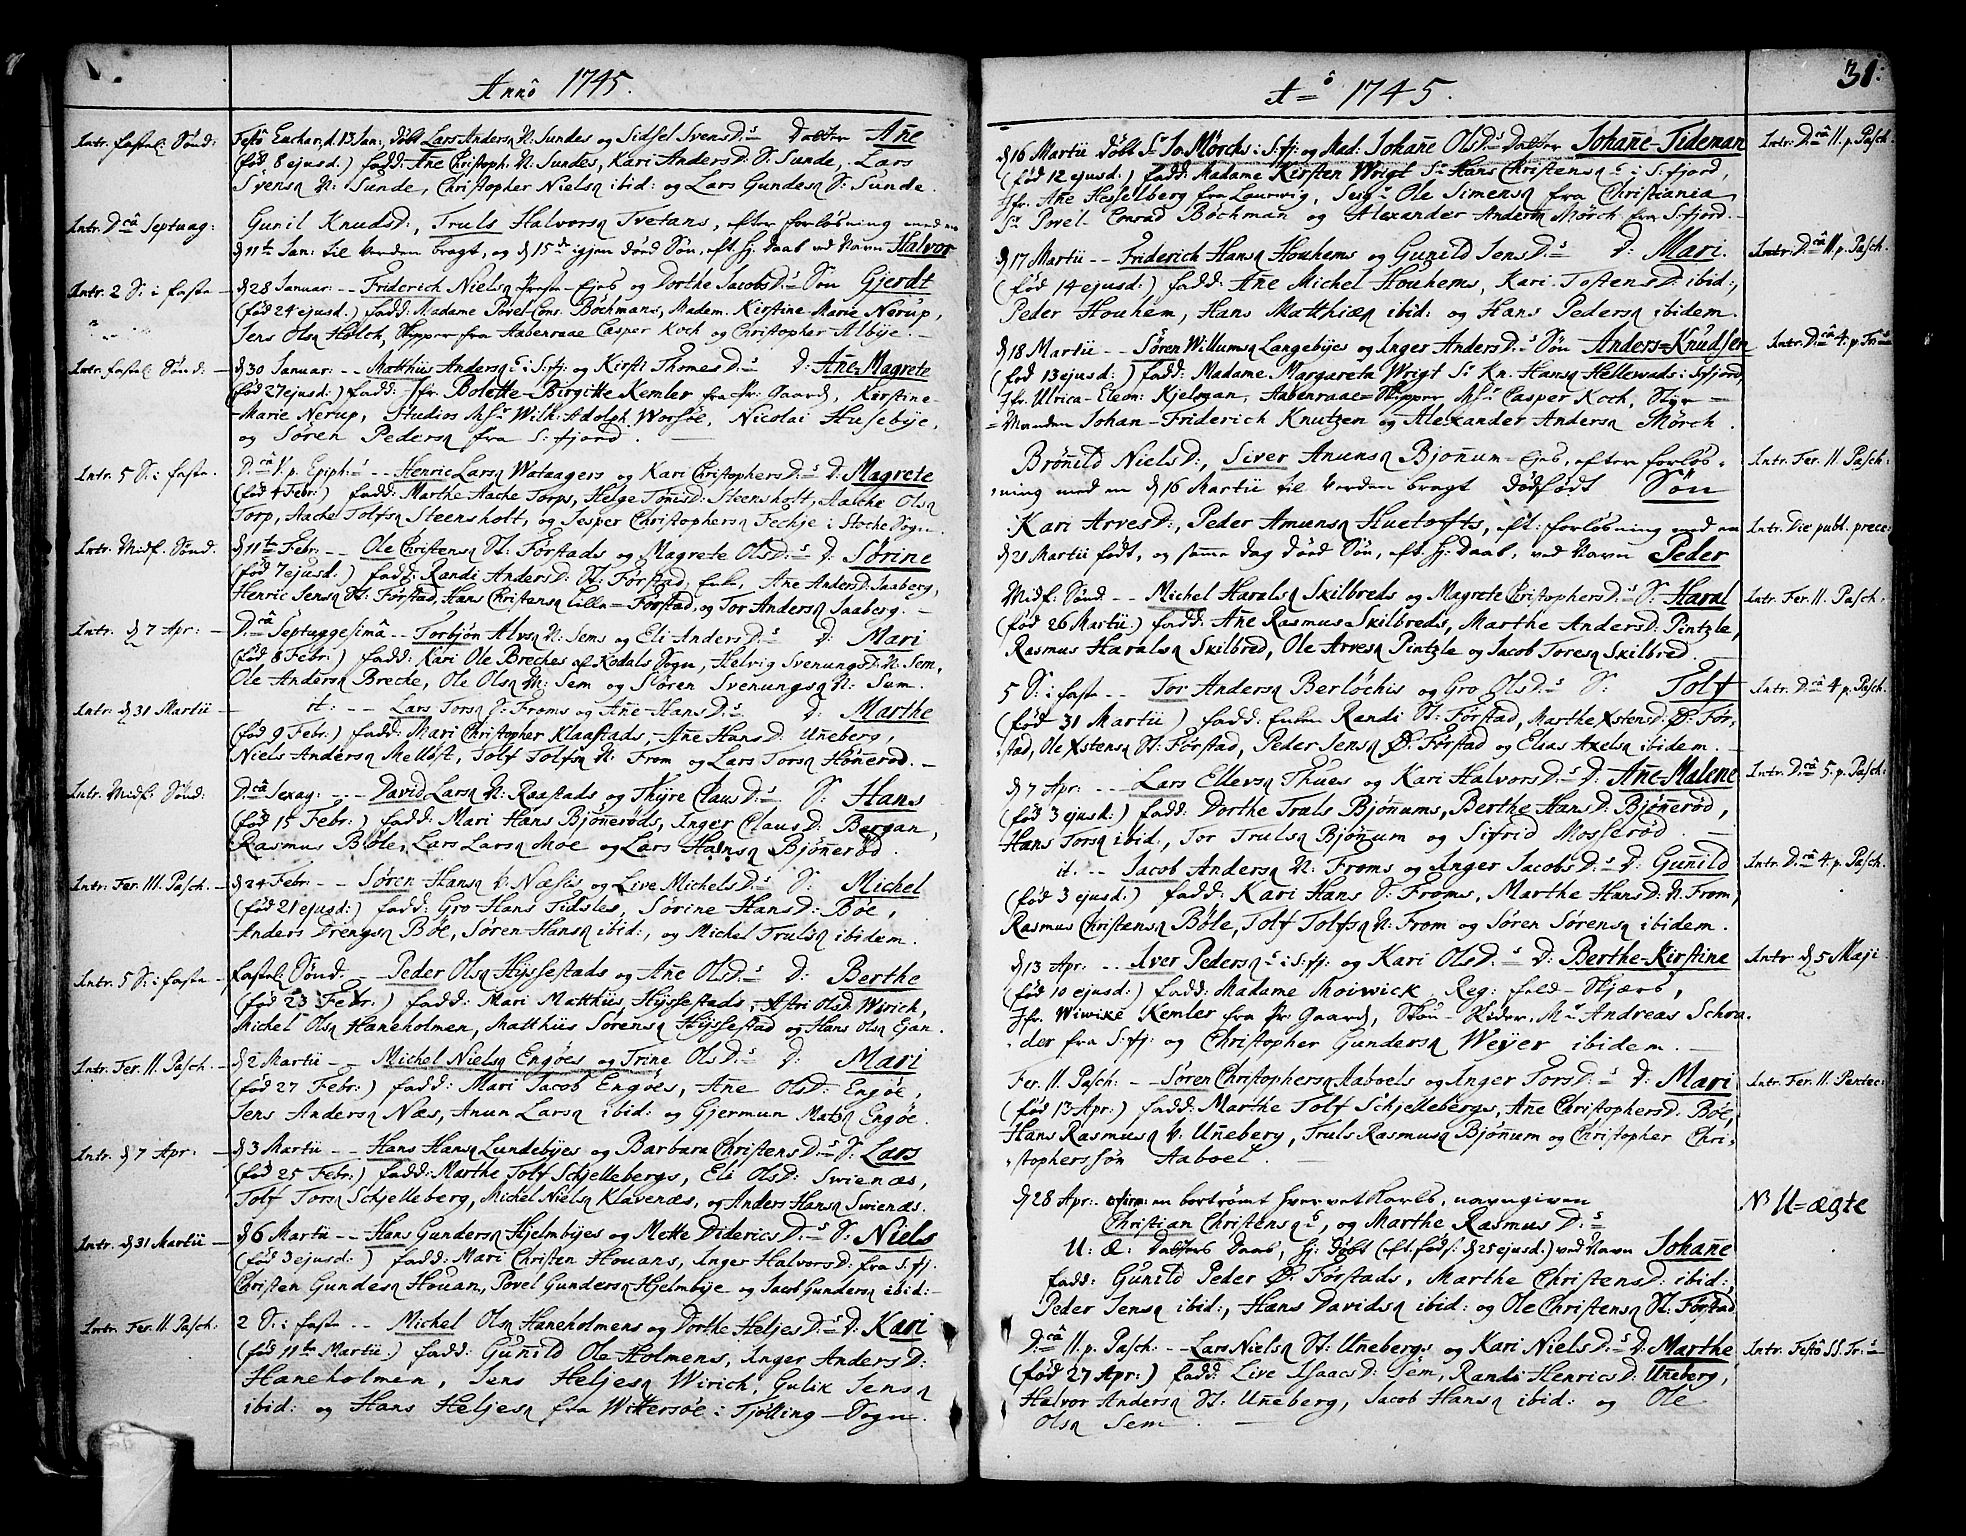 Anno 1745.
Intr. fastel. Sønd:
Festo Euchar. d. 13 Jan, døbt Lars Andersø N: Sundes og Sidsel SvensD:s Datter Añe
(fød 8 ejusd:) fadd: Añe Christoph: N: Sundes, Kari AndersD: S: Sunde, Lars
Svensø N: Sunde, Christopher Nielsø ibid: og Lars Gundesø S: Sunde.
Intr. D:câ Septuag:
Gunil KnudsD:, Truls Halvorsø Tvetans, efter forløsning med en
d 11te Jan: til Verden bragt, og d 15de igjen død Søn, eft. Hj. Daab ved Navn Halvor
Intr. 2 S: i faste
d 28 Januar: -- Friderich Nielsø Præste-Ejes og Dorthe JacobsD:s Søn Gjerdt
(fød 24 ejusd:) fadd: Madame Povel Conr. Böchmans, Madem. Kirstine Marie Nerup,
Jens Olsø Holch, Skipper fra Aabenraae Casper Koch og Christopher Albye. -
Intr. fastel. Sønd: -
d 30 Januar: -- Matthiis Andersø:s i S:fj: og Kirsti ThomesD:s D: Añe-Magrete
(fød 27 ejusd:) fadd: Jfr. Bolette-Birgitte Kemler fra Pr: Gaard, Kirstine-
Marie Nerup, Studios Msr Wilh: Adolph Worsöe, Nicolai Husebye,
og Sören Pedersø fra S:fjord. -
Intr. 5 S: i faste.
D:câ V. p. Epiph:s -- Henric Larsø Wataagers og Kari ChristophersD:s D: Magrete
(fød 4 Febr:) fadd: Marthe Aache Torps, Helge TomisD: Steensholt, Aache Olsø
Torp, Aache Tolfsø Steensholt, og Jesper Christophersø Fechje i Stoche Sogn.
Intr. Midf. Sønd.
d 11te Febr: -- Ole Christensø St: Førstads og Magrete OlsD:s D: Sørine
(fød 7 ejusd.) fadd: Randi AndersD: St: Førstad, Enke, Añe AndersD: Jaaberg,
Henric Jensø St: Førstad, Hans Christensø Lille-Førstad, og Tor Andersø Jaaberg. -
Intr. d 7 Apr: -
D:câ Septuagesimâ -- Torbjøn Alvsø N: Sems og Eli-AndersD:s D: Mari
(fød 8 Febr:) fadd: Kari Ole Breches af Kodals Sogn, Helvig SvenungsD: N: Sem,
Ole Andersø Breche, Ole Olsø N: Sem og Sören Svenungsø N: Sem.
Intr. d 31 Martii -
it: -- Lars Torsø S: Froms og Añe-HansD:s D: Marthe
(fød 9 Febr:) fadd: Mari Christopher Klaastads, Añe HansD: Uñeberg,
Niels Andersø Melløst, Tolf Tolfsø N: From og Lars Torsø Høñerød. -
Intr. Midf. Sønd:
D:câ Sexag: -- David Larsø N: Raastads og Thÿre ClausD:s S: Hans
(fød 15 Febr:) fadd: Mari Hans Bjöñeröds, Inger ClausD: Bergan,
Rasmus Böle, Lars Larsø Moe og Lars Hansø Bjöñeröd.
Intr. Fer. III. Pasch. -
d 24 Febr: -- Søren Hansø V: Næsis og Live MichelsD:s S: Michel
(fød 21 ejusd:) fadd: Gro Hans Tidsles, Sörine HansD: Böe,
Anders Drengsø Böe, Søren-Hansø ibid:, og Michel Trulsø ibidem.
Intr. 5 S: i faste -
fastel: Sønd. -- Peder Olsø Hÿssestads og Añe OlsD:s D: Berthe
(fød 23 Febr:) fadd: Mari Matthiis Hÿssestads, Astri OlsD: Wirich,
Michel Olsø Haneholmen, Matthiis Sörensø Hÿssestad og Hans Olsø Ejan.
Intr. Fer. II. Pasch. -
d 2 Martii -- Michel Nielsø Engöes og Trine OlsD:s D: Mari
(fød 27 Febr:) fadd: Mari Jacob Engöes, Añe OlsD: Engöe,
Jens Andersø Næs, Anun Larsø ibid: og Gjermun Matsø Engöe.
Intr. d 7 Apr: -
d 3 Martii -- Hans Hansø Lundebyes og Barbara ChristensD:s S: Lars
(fød 25 Febr:) fadd: Marthe Tolf Schjellebergs, Eli OlsD: Svienæs,
Tolf Torsø Schjelleberg, Michel Nielsø Klavenæs, og Anders Hansø Svienæs.
Intr. d 31 Martii -
d 6 Martii -- Hans Gundersø Hjelmbyes og Mette DidericsD:s S: Niels
(fød 3 ejusd:) fadd: Mari Christen Houans, Inger HalvorsD: fra S:fj.
Christen Gundesø Houan, Povel Gundersø Hjelmbye og Jacob Gundersø ibid: -
Intr. Fer. II. Pasch:
2 S: i faste -- Michel Olsø Haneholmens og Dorthe HeljesD:s D: Kari
(fød 11te Martii.) fadd: Guñild Ole Holmens, Inger AndersD:
Haneholmen, Jens Heljesø Wirich, Gulik Jensø
ibid: og Hans Heljesø fra Wittersöe i Tjölling-Sogn.
Aō 1745.
31:
d 16 Martii døbt Sr Jo Mörchs i S:fj: og Mad. Johañe OlsD:s Datter Johañe-Tideman
Intr. D:câ II. p. Pasch:
(fød 12 ejusd.) fadd: Madame Kirsten Wrigt Sr Hans Christensø:s i S:fjord,
Jfr. Añe Hesselberg fra Laurwig, Seigr Ole Simensø fra Christiania
Sr Povel Conrad Böchman og Alexander Andersø Mörch fra S:fjord. -
d 17 Martii -- Friderich Hansø Houhems og Gunild JensD:s D: Mari.
Intr. D:câ II. p. Pasch:
(fød 14 ejusd:) fadd: Añe Michel Houhems, Kari TostensD: ibid:,
Peder Houhem, Hans Matthiæsø ibid: og Hans Pedersø ibidem.
d 18 Martii -- Søren Willumsø Langebÿes og Inger AndersD:s Søn Anders-Knudsen
Intr. D:câ 4. p. Tr:s
(fød 13 ejusd:) fadd: Madame Margareta Wrigt Sr Kn: Hansø Hellewads i S:fjord,
Jfr. Ulrica-Eleon: Kjelsgan, Aabenraae-Skipper Msr Casper Koch, Styr-
-Manden Johan-Friderich Knutzen og Alexander Andersø Mörch.
Bröñild NielsD:, Siver Anunsø Bjöñum-Ejes, efter forløs-
Intr. Fer. II. Pasch:
-ning med en d 16 Martii til Verden bragt dødfødt Søn
Kari ArvesD:, Peder Amunsø Huetofts, eft: forløsning med en
Intr. Die publ. prece:
d 21 Martii født, og samme dag død Søn, eft. Hj: Daab, ved Navn Peder
Midf: Sønd -- Michel Haralsø Skilbreds og Magrete ChristophersD:s S: Haral
Intr. Fer. II. Pasch:
(fød 26 Martii) fadd: Añe Rasmus Skilbreds, Marthe AndersD: Pintzle,
Rasmus Haralsø Skilbred, Ole Arvesø Pintzle og Jacob Toresø Skilbred.
5 S: i faste -- Tor Andersø Berløchis og Gro OlsD:s S: Tolf
Intr. D:câ 4 p. Pasch:
(fød 31 Martii) fadd: Enken Randi St: Førstad, Marthe XstensD: Ø: Før-
-stad, Ole Xstensø St: Førstad, Peder Jensø Ø: Førstad og Elias Axelsø ibidem. -
d 7 Apr: -- Lars Ellevsø Thues og Kari HalvorsD:s D: Añe-Malene
Intr. D:câ 5. p. Pasch:
(fød 3 ejusd:) fadd: Dorthe Truls Bjöñums, Berthe-HansD: Bjöñeröd,
Hans Torsø ibid:, Tor Trulsø Bjöñum og Sifrid Mosseröd. -
it. -- Jacob Andersø N: Froms og Inger JacobsD:s D: Guñild
Intr. D:câ 4. p. Pasch:
(fød 3 ejusd:) fadd: Kari Hans S: Froms, Marthe HansD: N: From,
Rasmus Christensø Böle, Tolf Tolfsø N: From og Søren Sørensø ibidem.
d 13 Apr: -- Iver Pedersø:s i S:fj: og Kari OlsD:s D: Berthe-Kirstine
Intr. d 5 Maji
(fød 10 ejusd:) fadd: Madame Moiwick, Reg: feld-Skjærs,
Jfr. Wiwike Kemler fra Pr: Gaard, Skou-Rider, Mr Andreas Schrø-
-der fra S:fj: og Christopher Gundersø Weyer ibidem. -
Fer. II. Pasch: -- Søren Christophersø Aaboels og Inger TorsD:s D: Mari
Intr. Fer. II. Pentec:
(fød 13 Apr:) fadd: Marthe Tolf Schjellebergs, Añe ChristophersD: Böe,
Hans Rasmusø V: Uñeberg, Truls-Rasmusø Bjöñum og Christopher Chri-
-stopherssön Aaboel. -
d 28 Apr: en bortrømt hvervet Karls, navngiven
NB U-ægte
Christian Christensø:s, og Marthe RasmusD:s
U: Æ: Datters Daab, hj: døbt (eft. føds: d 25 ejusd:) ved Navn Johañe
fadd: Guñild Peder Ø: Førstads, Marthe ChristensD: ibid:,
Peder Jensø ibid:, Hans Davidsø ibid: og Ole Christensø St: Førstad
D:câ II. p. Pasch: -- Lars Nielsø St: Uñebergs og Kari NielsD:s D: Marthe
Intr. Festo SS. Tr:s
(fød 27 Apr:) fadd: Live IsaacsD: Sem, Randi HenricsD: Uñeberg,
Halvor Andersø St: Uñeberg, Jacob Hansø ibid: og Ole
Olsø Sem. -